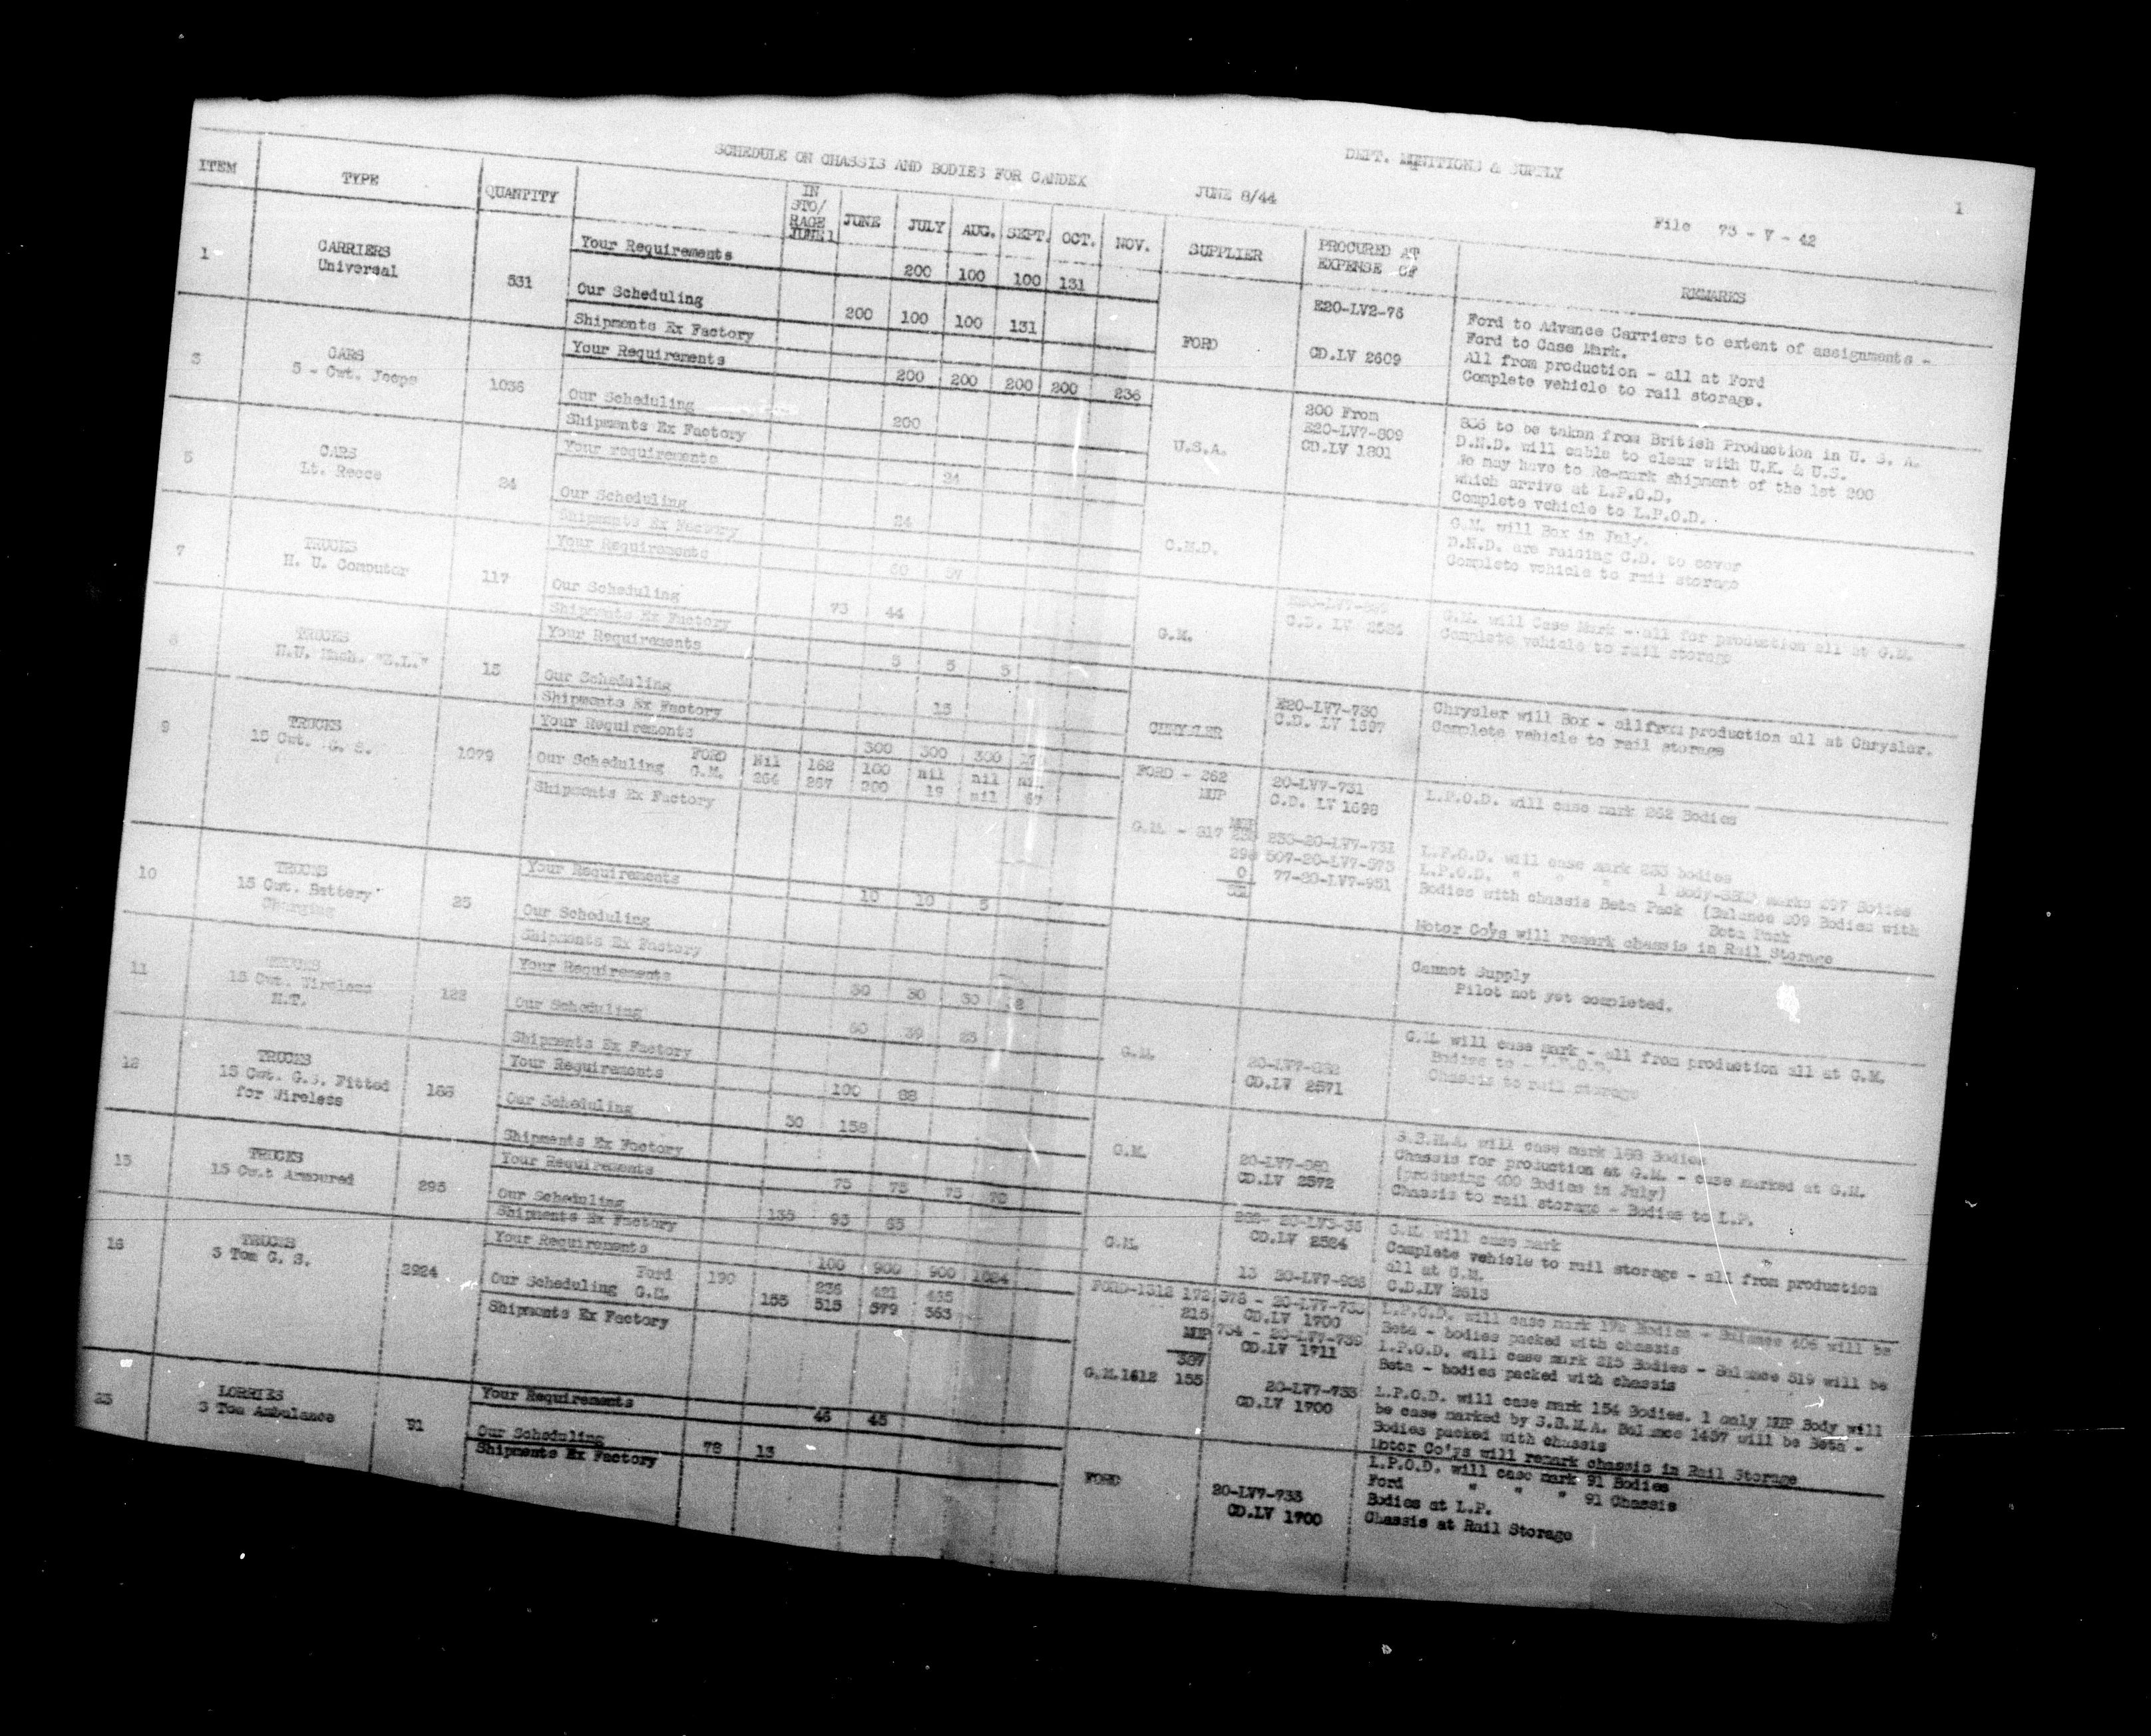 SCHEDULE ON CHASSIS AND BODIES FOR CANDEX
DEPT. MUNITIONS & SUPPLY
JUNE 8/44
File 73 - V - 42
1
ITEM TYPE QUANTITY IN STO/RAGE JUNE 1 JUNE JULY AUG. SEPT. OCT. NOV. SUPPLIER PROCURED AT EXPENSE OF REMARKS
1 CARRIERS
Universal
531
Your Requirements 200 100 100 131
Our Scheduling 200 100 100 131
Shipments Ex Factory
FORD
E20-LV2-76
CD.LV 2609
Ford to Advance Carriers to extent of assignments -
Ford to Case Mark.
All from production - all at Ford
Complete vehicle to rail storage.
3 CARS
5 - Cwt. Jeeps
1036
Your Requirements 200 200 200 200 236
Our Scheduling 200
Shipments Ex Factory
U.S.A.
200 From
E20-LV7-809
CD.LV 1801
836 to be taken from British Production in U. S. A.
D.N.D. will cable to clear with U.K. & U.S.
We may have to Re-mark shipment of the 1st 200
which arrive at L.P.O.D.
Complete vehicle to L.P.O.D.
5 CARS
Lt. Recce
24
Your requirements 24
Our Scheduling 24
Shipments Ex Factory
G.M.D.
G.M. will Box in July.
D.N.D. are raising C.D. to cover
Complete vehicle to rail storage
7 TRUCKS
H. U. Computor
117
Your Requirements 60 57
Our Scheduling 73 44
Shipments Ex Factory
G.M.
C.D. LV
G.M. will Case Mark - all for production all at G.M.
Complete vehicle to rail storage
8 TRUCKS
H.U. Mach.
15
Your Requirements 5 5 5
Our Scheduling 15
Shipments Ex Factory
CHRYSLER
E20-LV7-730
C.D. LV 1697
Chrysler will Box - all from production all at Chrysler.
Complete vehicle to rail storage
9 TRUCKS
15 Cwt. G. S.
1079
Your Requirements 300 300 300
Our Scheduling FORD Nil 162 100 nil nil
G.M. 264 267 200 19 nil 67
Shipments Ex Factory
FORD - 262
MUP
20-LV7-731
C.D. LV 1698
L.P.O.D. will case mark 262 Bodies
G.M. - 817
233-20-LV7-731
507-20-LV7-573
77-20-LV7-951
L.P.O.D. will case mark 233 bodies
L.P.O.D. " " " 1 Body-SBMA marks 297 Bodies
Bodies with chassis Beta Pack (Balance 209 Bodies with
Beta Pack
Motor Co'ys will remark chassis in Rail Storage
10 TRUCKS
15 Cwt. Battery
Charging
25
Your Requirements 10 10 5
Our Scheduling
Shipments Ex Factory
Cannot Supply
Pilot not yet completed.
11 TRUCKS
15 Cwt. Wireless
122
Your Requirements 30 30 30
Our Scheduling 60 39 23
Shipments Ex Factory
G.M.
CD.LV 2571
G.M. will case mark - all from production all at G.M.
Bodies to - L.P.O.D.
Chassis to rail storage
12 TRUCKS
15 Cwt. G.S. Fitted
for Wireless
188
Your Requirements 100 88
Our Scheduling 30 158
Shipments Ex Factory
G.M.
CD.LV 2572
S.B.M.A. will case mark 188 Bodies
Chassis for production at G.M. - case marked at G.M.
(producing 400 Bodies in July)
Chassis to rail storage - Bodies to L.P.
15 TRUCKS
15 Cwt Armoured
295
Your Requirements 75 75 75 70
Our Scheduling 135 95 65
Shipments Ex Factory
G.M.
282- 20-LV3-36
CD.LV 2524
G.M. will case mark
Complete vehicle to rail storage - all from production
all at G.M.
C.D.LV 2613
16 TRUCKS
3 Ton G. S.
2924
Your Requirements 100 900 900 1024
Our Scheduling Ford 190 236 421 465
G.M. 155 515 579 363
Shipments Ex Factory
FORD-1312 172
215
MUP
387
CD.LV 1700
CD.LV 1911
L.P.O.D. will case mark 172 Bodies - Balance 406 will be
Beta - bodies packed with chassis
L.P.O.D. will case mark 215 Bodies - Balance 519 will be
Beta - bodies packed with chassis
G.M.1612 155
20-LV7-733
CD.LV 1700
L.P.O.D. will case mark 154 Bodies. 1 only MUP Body will
be case marked by S.B.M.A. Balance 1457 will be Beta -
Bodies packed with chassis
Motor Co'ys will remark chassis in Rail Storage
23 LORRIES
3 Ton Ambulance
91
Your Requirements 46 45
Our Scheduling 78 13
Shipments Ex Factory
FORD
20-LV7-733
CD.LV 1700
L.P.O.D. will case mark 91 Bodies
Ford " " " 91 Chassis
Bodies at L.P.
Chassis at Rail Storage